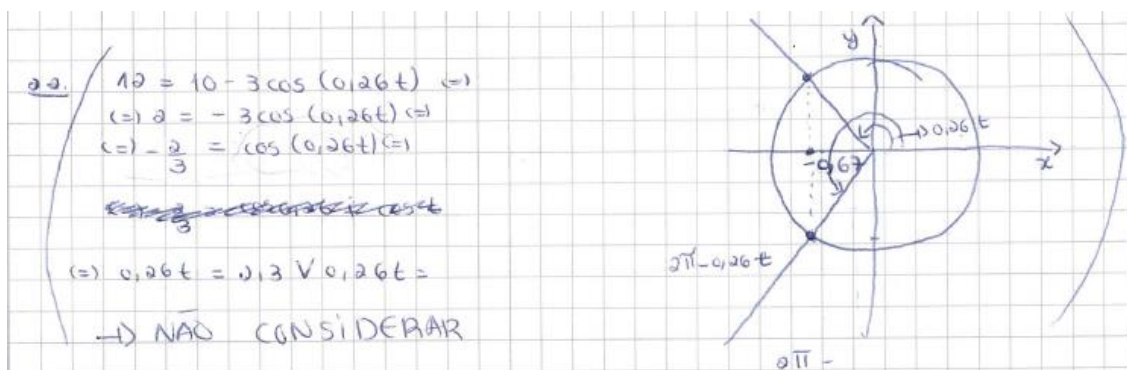 22. 12 = 10 - 3 cos (0,26t) (=)
(=) 2 = - 3 cos (0,26t) (=)
(=) - 2/3 = cos (0,26t) (=)
(=) 0,26t = 2,3 V 0,26t =
→ NÃO CONSIDERAR
y
→ 0,26t
x
-0,67
2π-0,26t
2π -